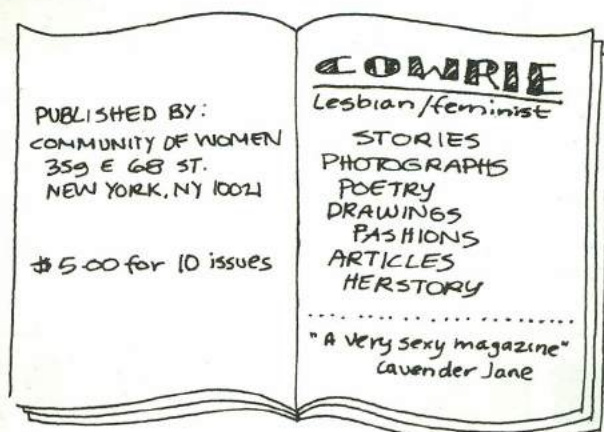 PUBLISHED BY:
COMMUNITY OF WOMEN
359 E 68 ST.
NEW YORK, NY 10021
$5.00 for 10 issues
COWRIE
Lesbian/feminist
STORIES
PHOTOGRAPHS
POETRY
DRAWINGS
FASHIONS
ARTICLES
HERSTORY
"A very sexy magazine"
Lavender Jane